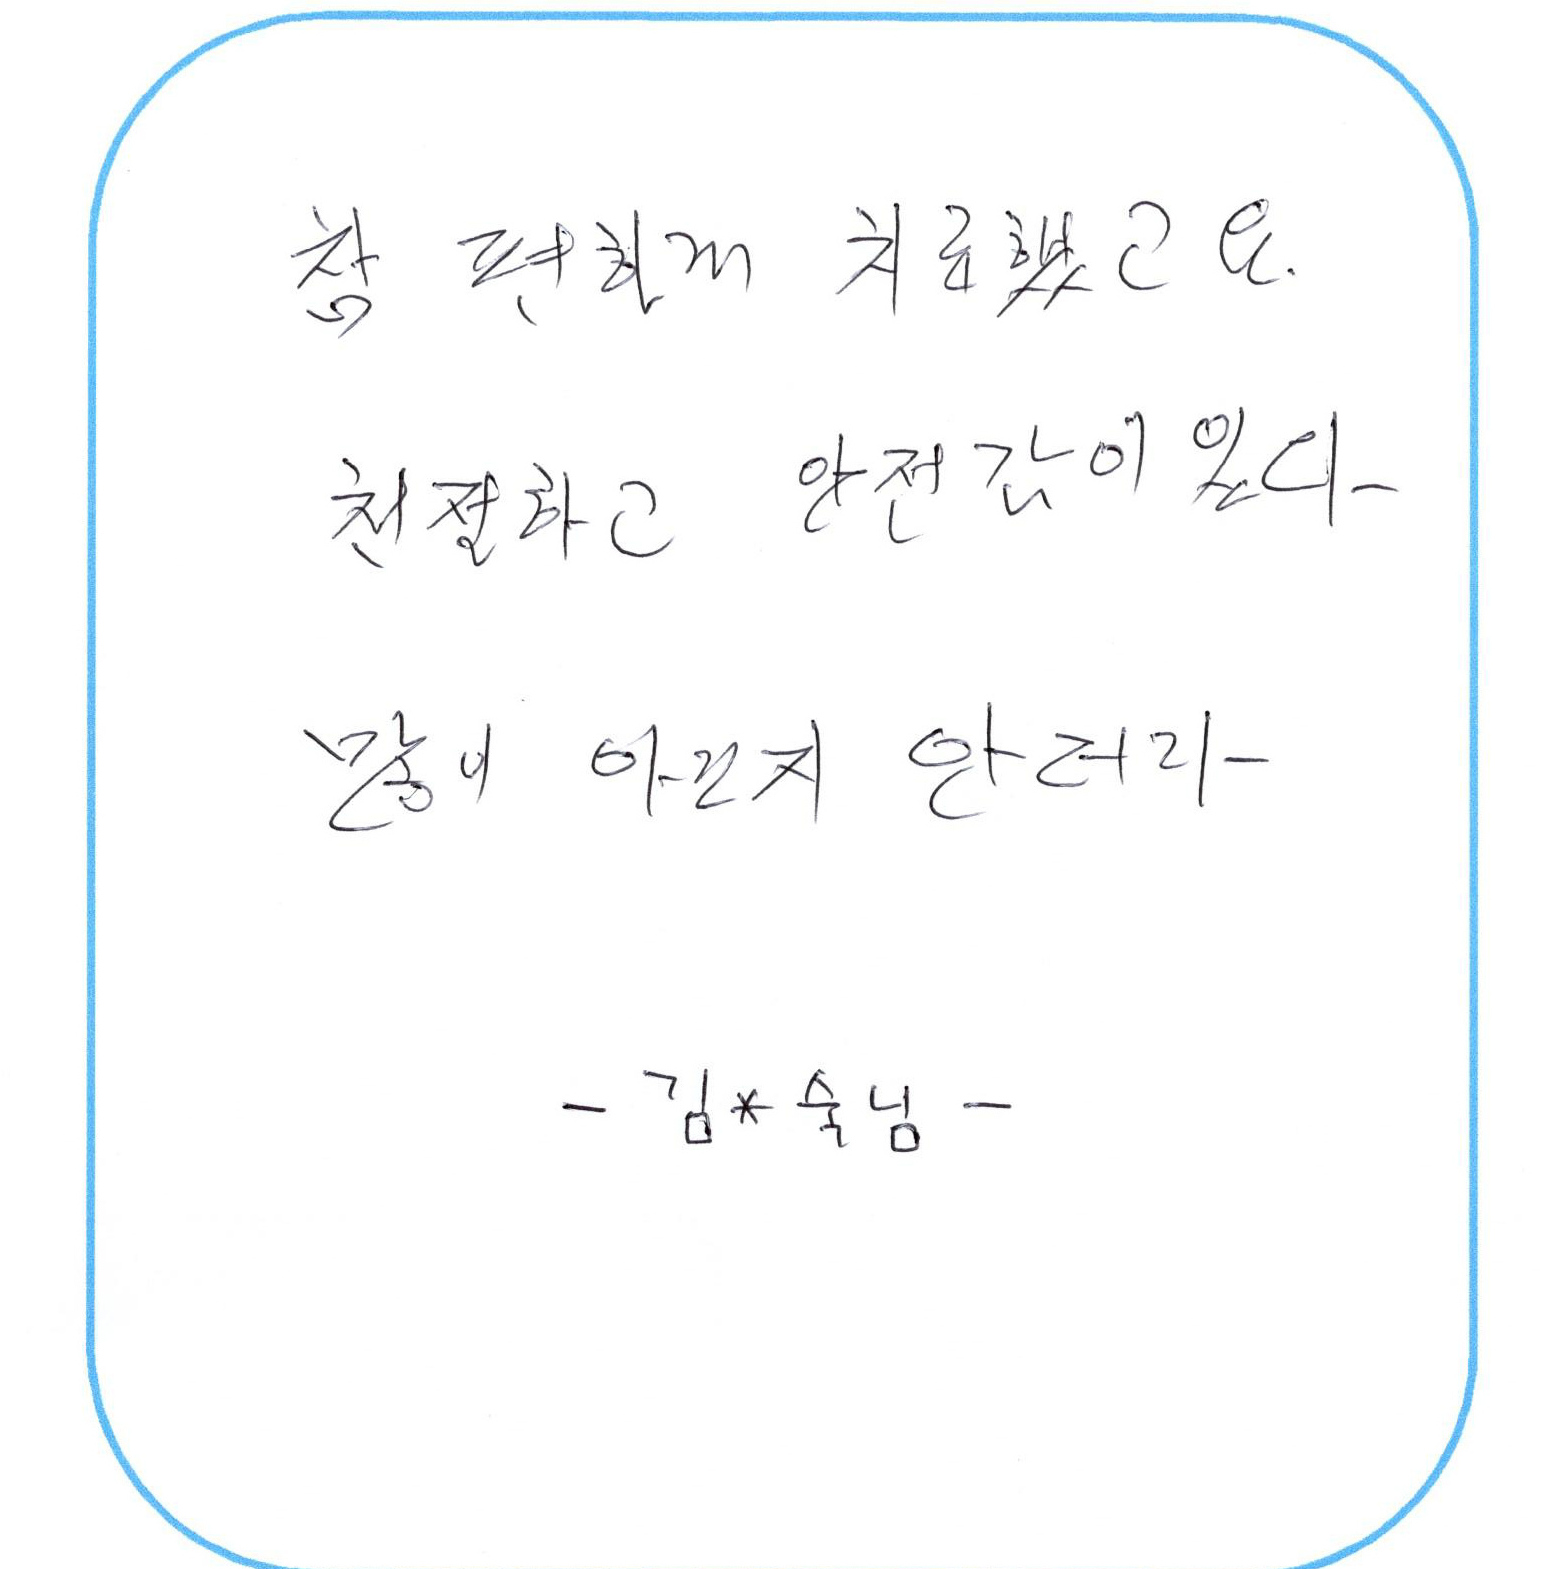 참 편하게 치료했고요.
친절하고 안전감이 있다-
많이 아프지 안터라-
- 김*숙님 -